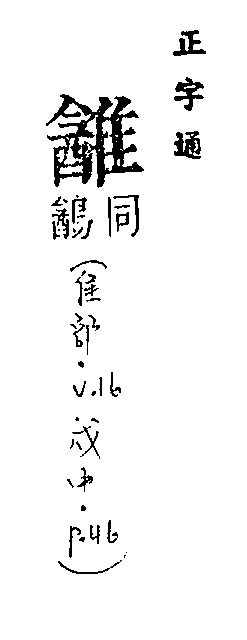 正字通
同
(隹部·v.16戌中·p.46)